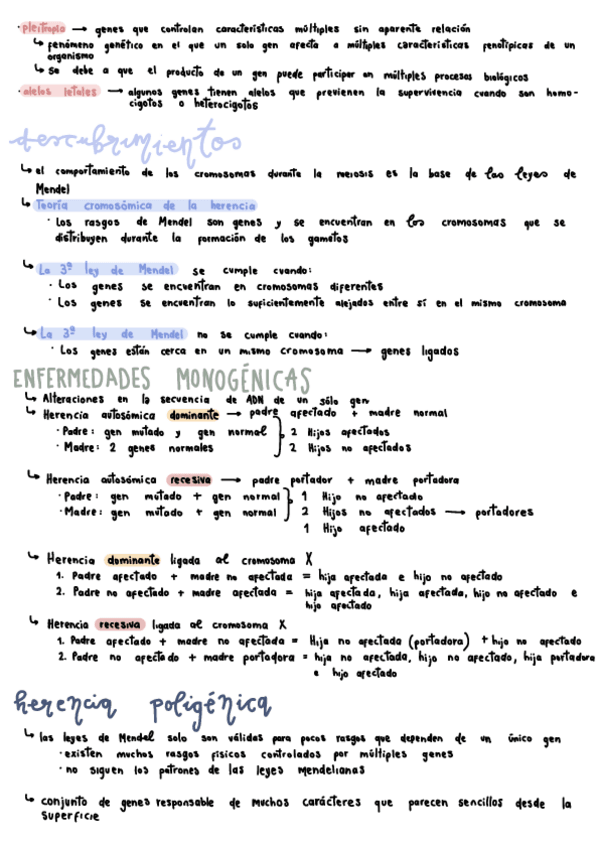 · pleitropia → genes que controlan características múltiples sin aparente relación
↳ fenómeno genético en el que un solo gen afecta a múltiples características fenotípicas de un
organismo
↳ se debe a que el producto de un gen puede participar en múltiples procesos biológicos
· alelos letales → algunos genes tienen alelos que previenen la supervivencia cuando son homo-
cigotos o heterocigotos
descubrimientos
↳ el comportamiento de los cromosomas durante la meiosis es la base de las leyes de
Mendel
↳ Teoría cromosómica de la herencia
· Los rasgos de Mendel son genes y se encuentran en los cromosomas que se
distribuyen durante la formación de los gametos
↳ La 3ª ley de Mendel se cumple cuando:
· Los genes se encuentran en cromosomas diferentes
· Los genes se encuentran lo suficientemente alejados entre sí en el mismo cromosoma
↳ La 3ª ley de Mendel no se cumple cuando:
· Los genes están cerca en un mismo cromosoma → genes ligados
ENFERMEDADES MONOGÉNICAS
↳ Alteraciones en la secuencia de ADN de un sólo gen
↳ Herencia autosómica dominante → padre afectado + madre normal
· Padre: gen mutado y gen normal } 2 Hijos afectados
· Madre: 2 genes normales 2 Hijos no afectados
↳ Herencia autosómica recesiva → padre portador + madre portadora
· Padre: gen mutado + gen normal } 1 Hijo no afectado
· Madre: gen mutado + gen normal 2 Hijos no afectados → portadores
1 Hijo afectado
↳ Herencia dominante ligada al cromosoma X
1. Padre afectado + madre no afectada = hija afectada e hijo no afectado
2. Padre no afectado + madre afectada = hija afectada, hija afectada, hijo no afectado e
hijo afectado
↳ Herencia recesiva ligada al cromosoma X
1. Padre afectado + madre no afectada = Hija no afectada (portadora) + hijo no afectado
2. Padre no afectado + madre portadora = hija no afectada, hijo no afectado, hija portadora
e hijo afectado
herencia poligénica
↳ las leyes de Mendel solo son válidas para pocos rasgos que dependen de un único gen
· existen muchos rasgos físicos controlados por múltiples genes
· no siguen los patrones de las leyes mendelianas
↳ conjunto de genes responsable de muchos carácteres que parecen sencillos desde la
superficie